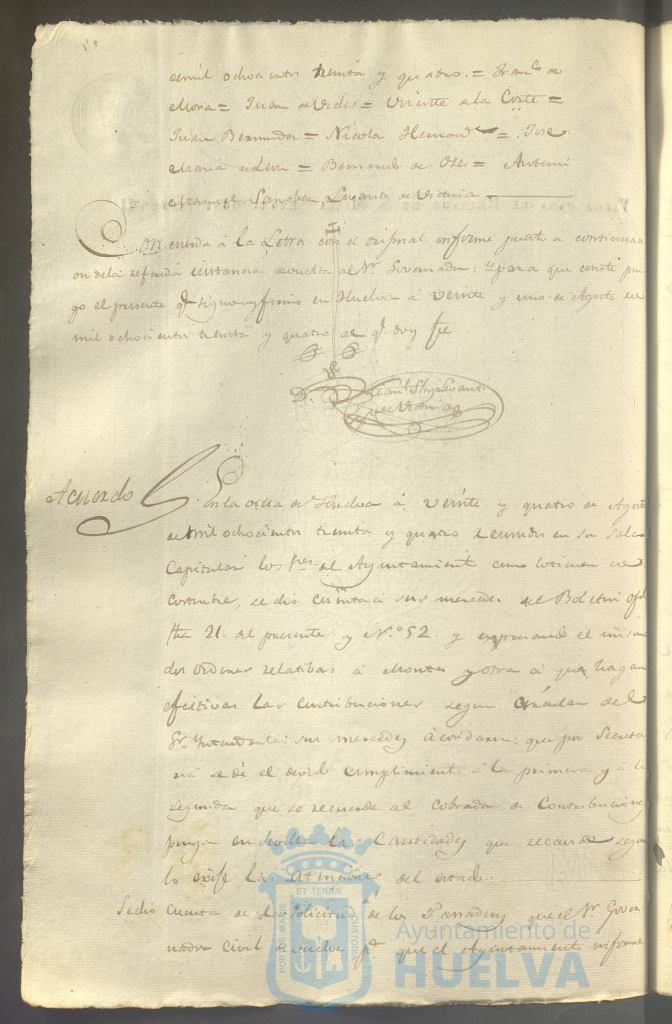 de mil ochocientos treinta y quatro. = Franco de
Mora = Juan de Vides = Vicente de la Corte =
Juan Bermudez = Nicolas Hernandz = Jose
Maria de Leon = Bernardo de = Antonio
Manuel Sanchez Levanto de Victoria
Concuerda á la Letra con el original informe puesto a continuaci
on dela referida instancia devuelta al Sr. Governador: Y para que conste pon
go el presente q. signo y firmo en Huelva á veinte y uno de Agosto de
mil ochocientos treinta y quatro de q. doy fe
Levanto
de Victoria
Acuerdo
En la villa de Huelva á veinte y quatro de Agosto
de mil ochocientos treinta y quatro reunidos en su Sala
Capitular los Sres. del Ayuntamiento como lo tienen de
costumbre, se dio cuenta á sus mercedes del Boletin ofl.
fha 21. del presente y N.º 52. y expresando el mismo
dos ordenes relatibas á Montes y otra á que hagan
efectivas las contribuciones segun circular del
Sr. Intendente: sus mercedes acordaron: que por Secreta
ria se dé el devido cumplimiento á la primera y á la
segunda que se recuerde al Cobrador de Contribuciones
ponga en Sevilla las Cantidades que recaude segun
lo exije las atenciones del estado.
Se dio cuenta de la Solicitud de los que el Sr. Gover
nador Civil devuelve pa. que el Ayuntamiento informe
PORTUS MARIS ET TERRAE CUSTODIA
Ayuntamiento de
HUELVA